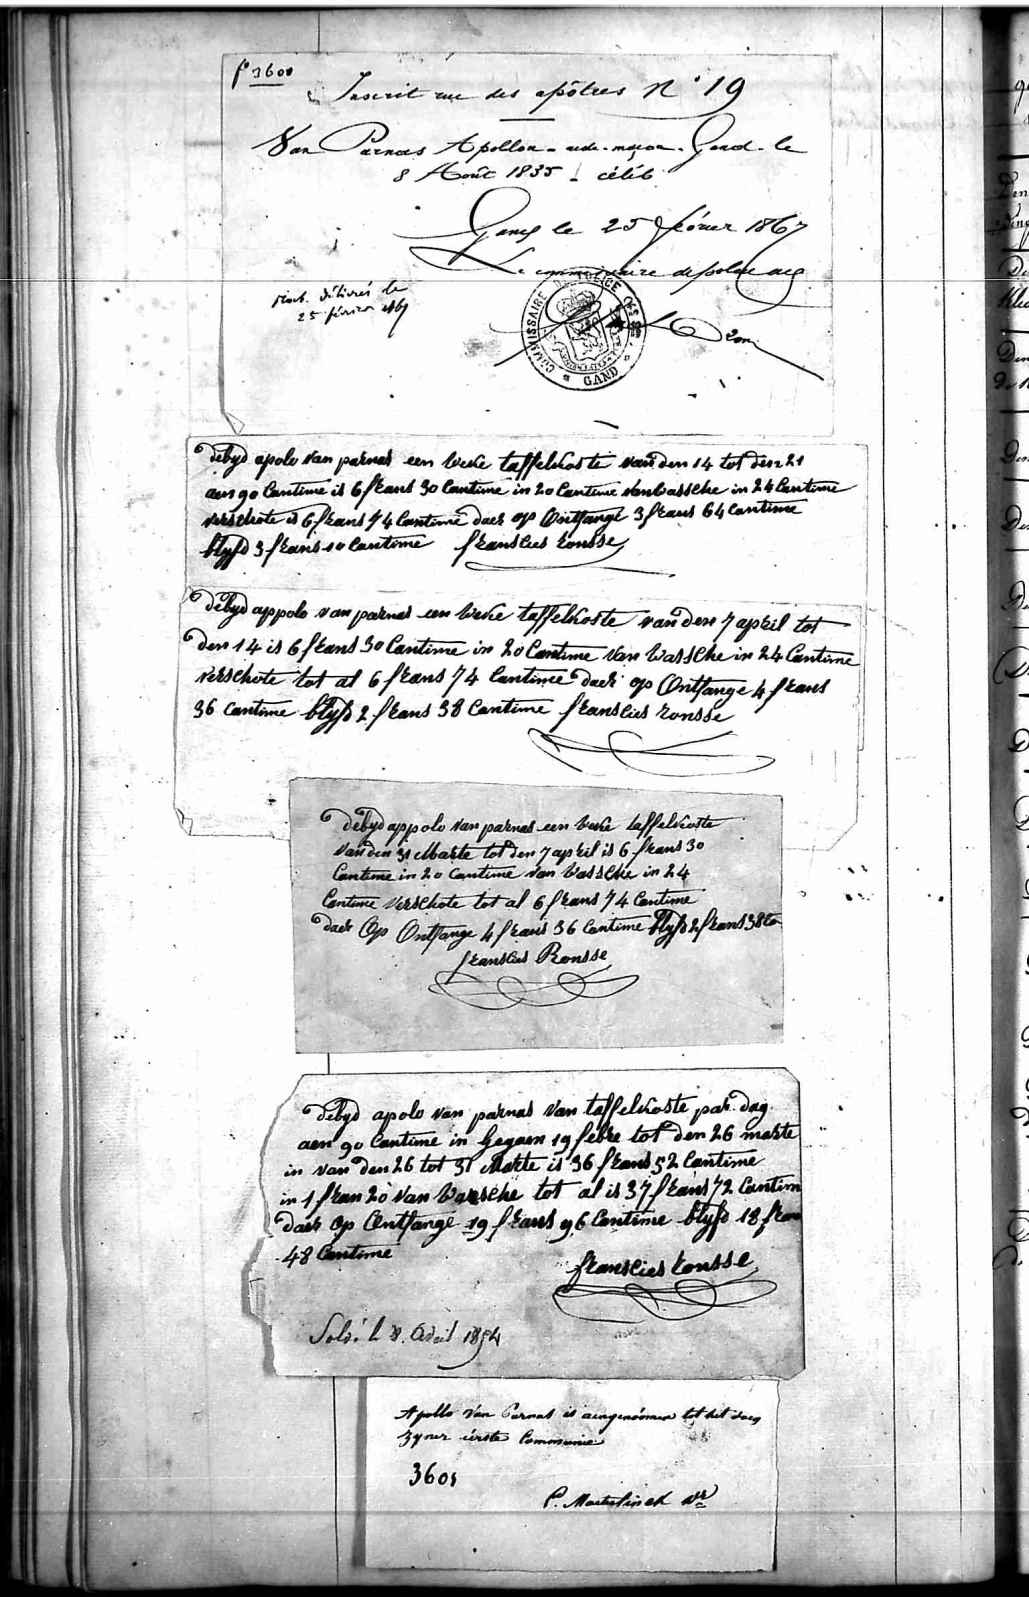 f° 3601
Inscrit rue des apôtres N° 19
Van Parnas Apollon - aide-maçon - Gand - le
8 Août 1835 - célib.
Gand le 25 février 1867
Le commissaire de police adj
délivrés le
25 février 1867
COMMISSAIRE DE POLICE
GAND
debyd apolo van parnas een weke taffelkoste van den 14 tot den 21
aen 90 Cantime is 6 frans 30 Cantime in 20 Cantime van wassche in 24 Cantime
verschote is 6 frans 74 Cantime daer op Ontfange 3 frans 64 Cantime
blyfd 3 frans 10 Cantime franscies ronsse
debyd appolo van parnas een weke taffelkoste van den 7 april tot
den 14 is 6 frans 30 Cantime in 20 Cantime van wassche in 24 Cantime
verschote tot al 6 frans 74 Cantime daer op Ontfange 4 frans
36 Cantime blyfd 2 frans 38 Cantime franscies ronsse
debyd appolo van parnas een weke taffelkoste
van den 31 Marte tot den 7 april is 6 frans 30
Cantime in 20 Cantime van wassche in 24
Cantime verschote tot al 6 frans 74 Cantime
daer Op Ontfange 4 frans 36 Cantime blyfd 2 frans 38 Ca
franscies Ronsse
debyd apolo van parnas van taffelkoste par dag
aen 90 Cantime in Gegaen 19 febre tot den 26 marte
in van den 26 tot 31 Marte is 36 frans 52 Cantime
in 1 fran 20 van Wassche tot al is 37 frans 72 Cantim
daer op Ontfange 19 frans 96 Cantime blyfd 18 fran
48 Cantime
franscies ronsse
Soldé le 8 Avril 1854
Apollo Van Parnas is aengenomen tot het doen
zyner eerste Communie
3601